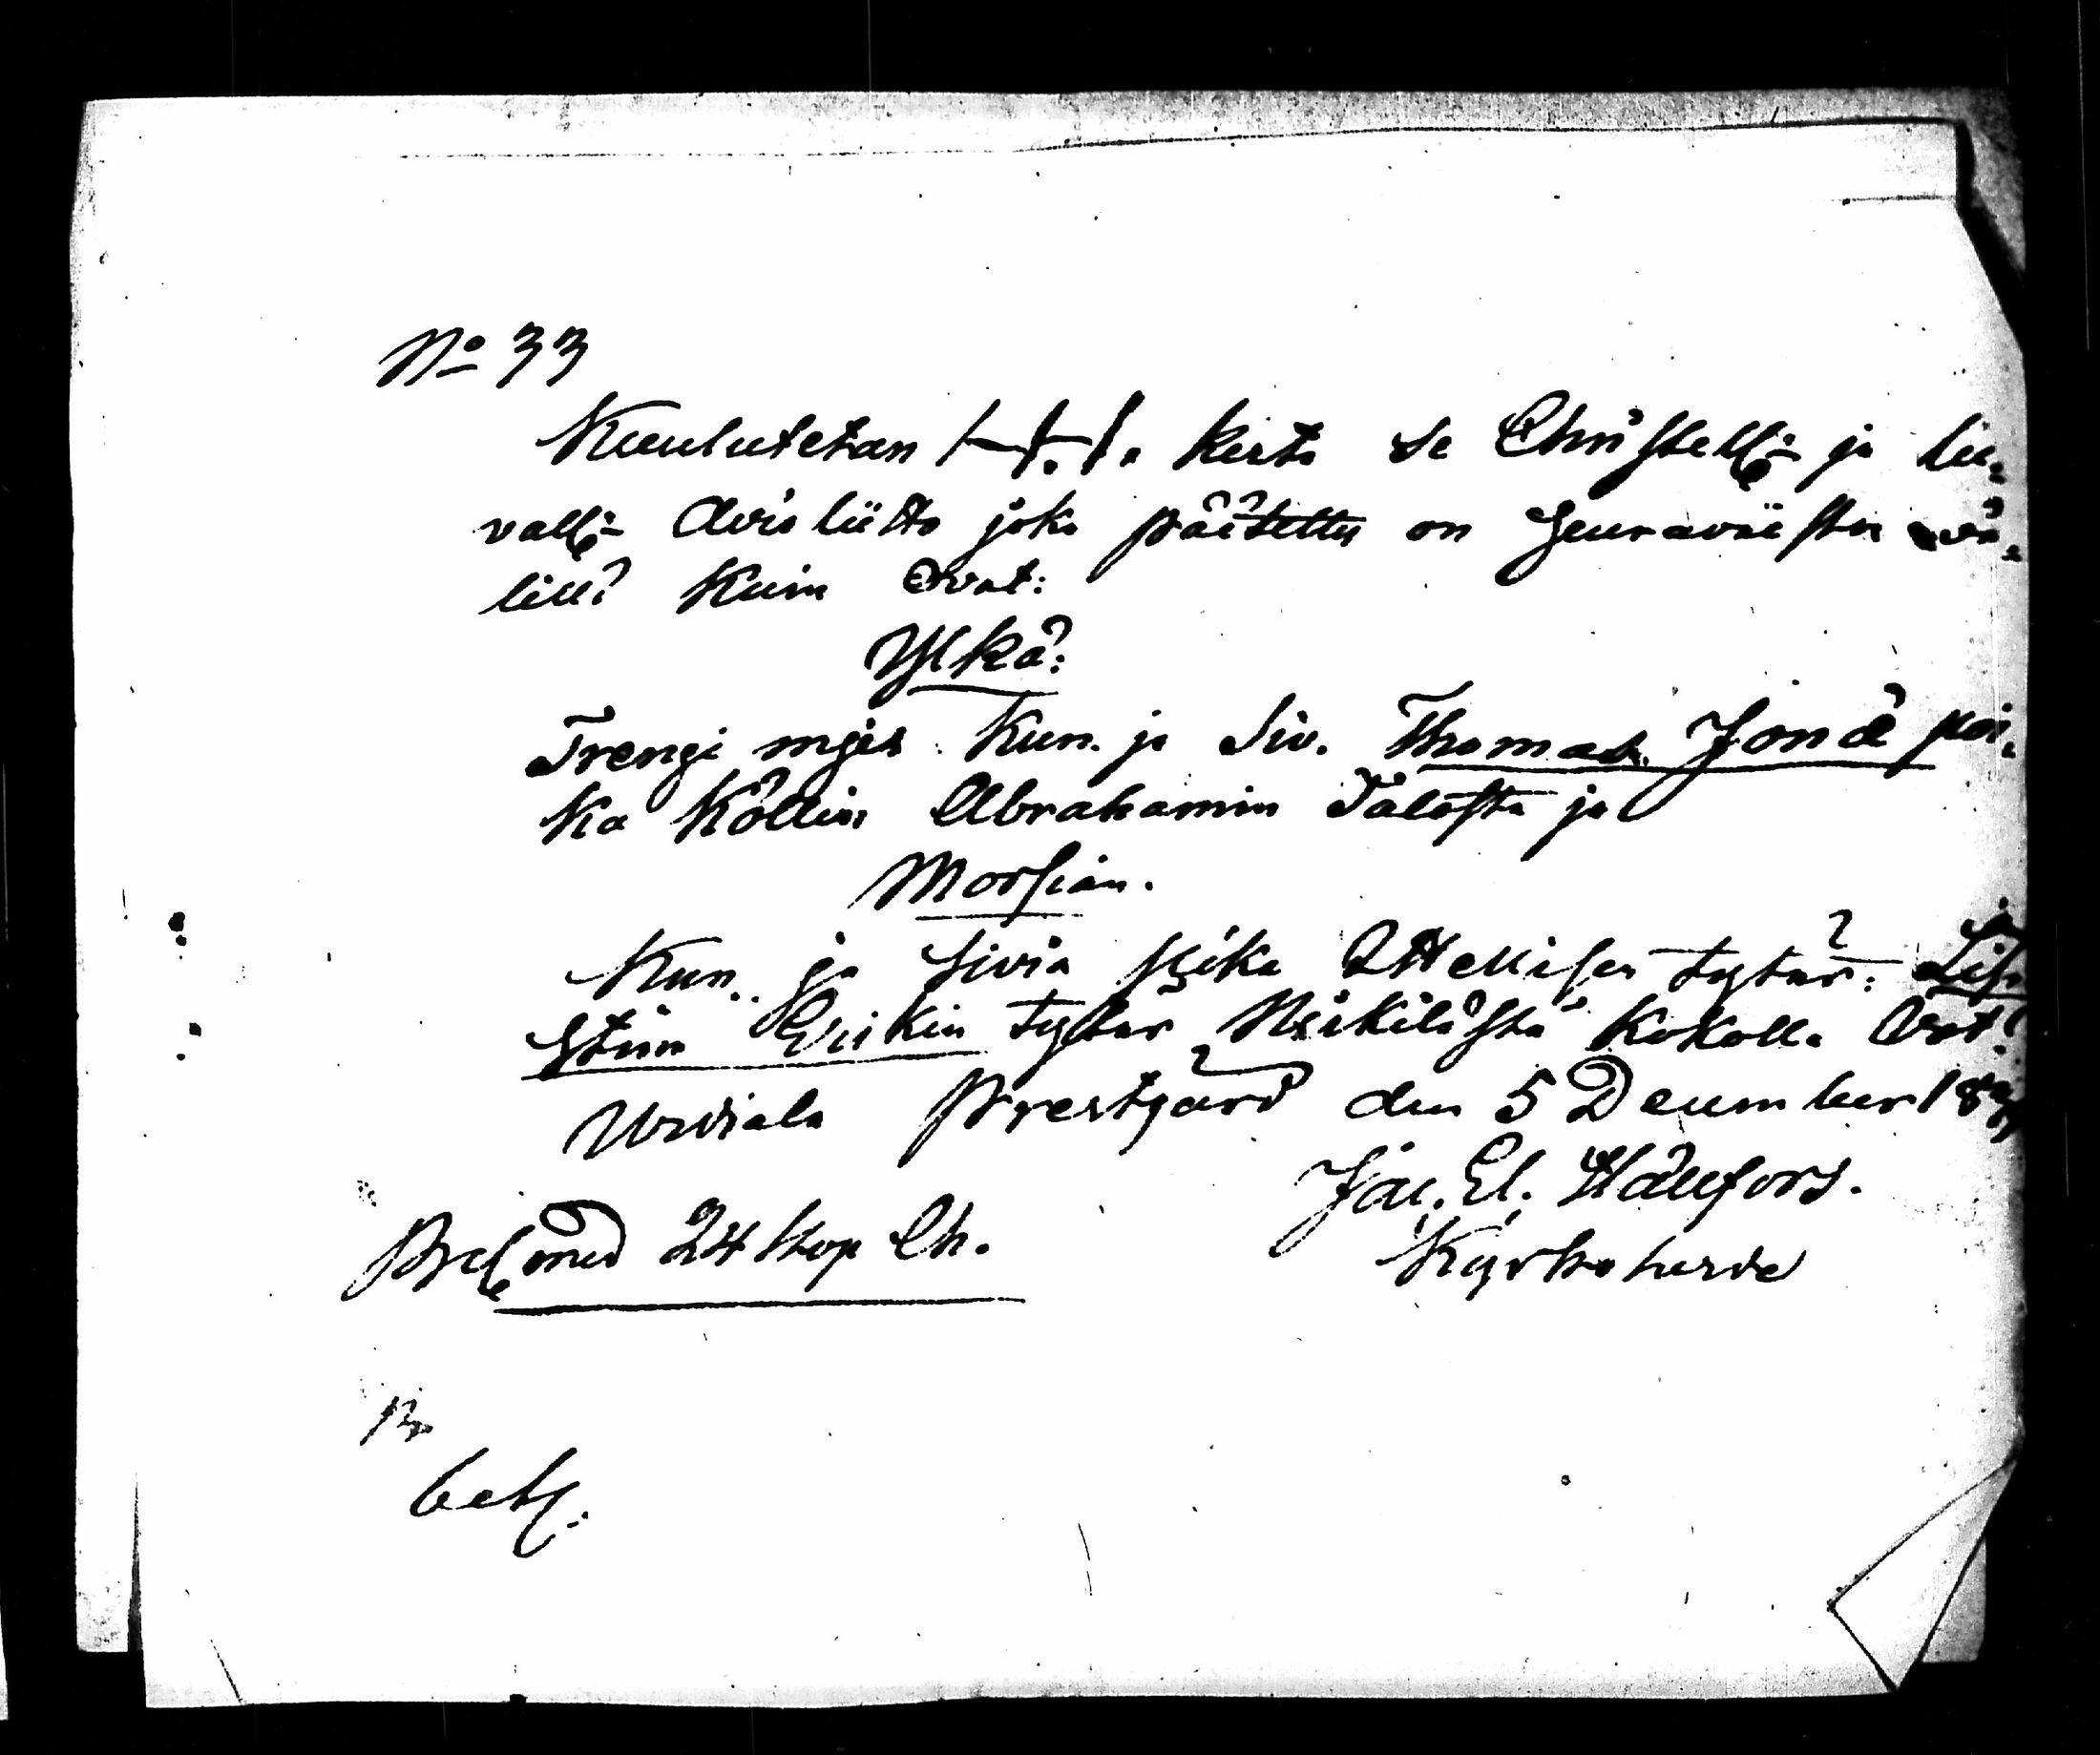 No 33
Kuulutetan 1. kerta se Christelli: ja lu-
valli: Avio liitto joka päätetty on Seuravaisten wä-
lillä Kuin Ovat:
Ylkä:
Trengi mjes Kun. ja Siv. Thomas Jonä poi-
ka Köllin Abrahamin Talosta ja
Morsian.
Kun. ja Sivia pika tytär:
Stiin tytär Heikilästä Kokolla
Urdiala Prestgård den 5 December 18
Jac. El. Hällfors.
Kyrkoherde
med 24 kop Ch.
bet.